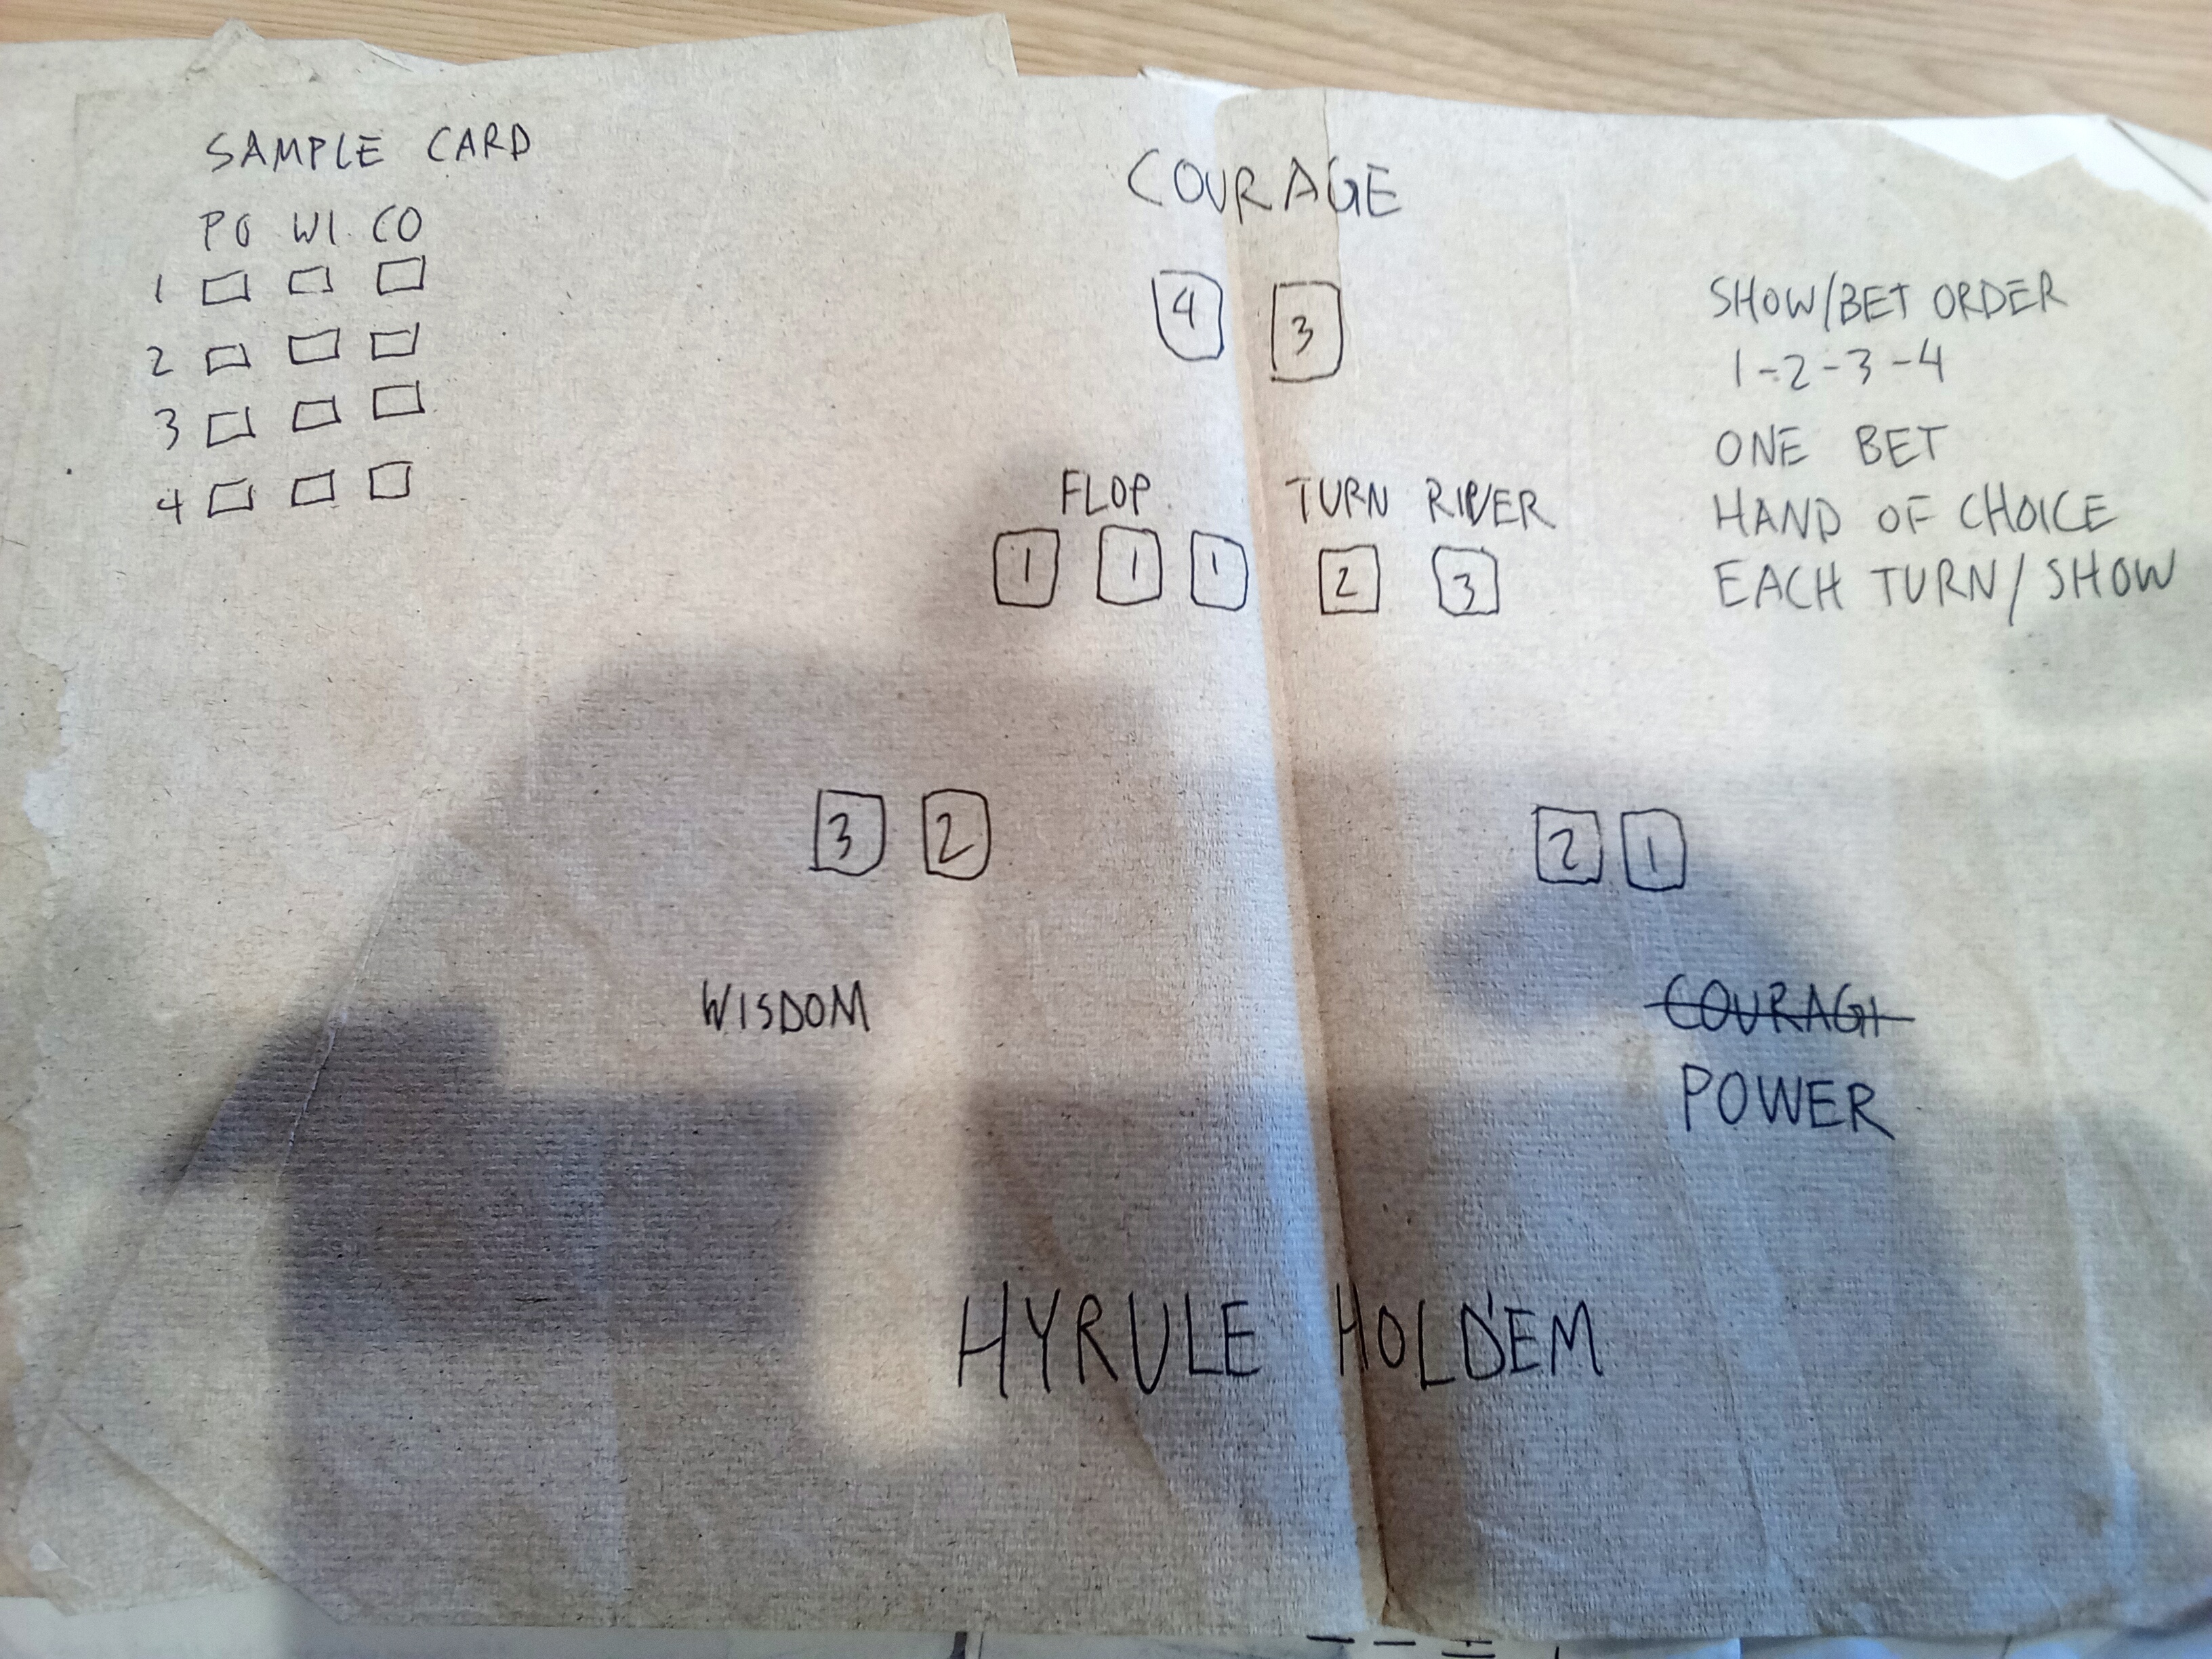 SAMPLE CARD
PO WI CO
1
2
3
4
COURAGE
4 3
FLOP TURN RIVER
1 1 1 2 3
SHOW/BET ORDER
1-2-3-4
ONE BET
HAND OF CHOICE
EACH TURN/SHOW
3 2
WISDOM
2 1
COURAGE
POWER
HYRULE HOLD'EM